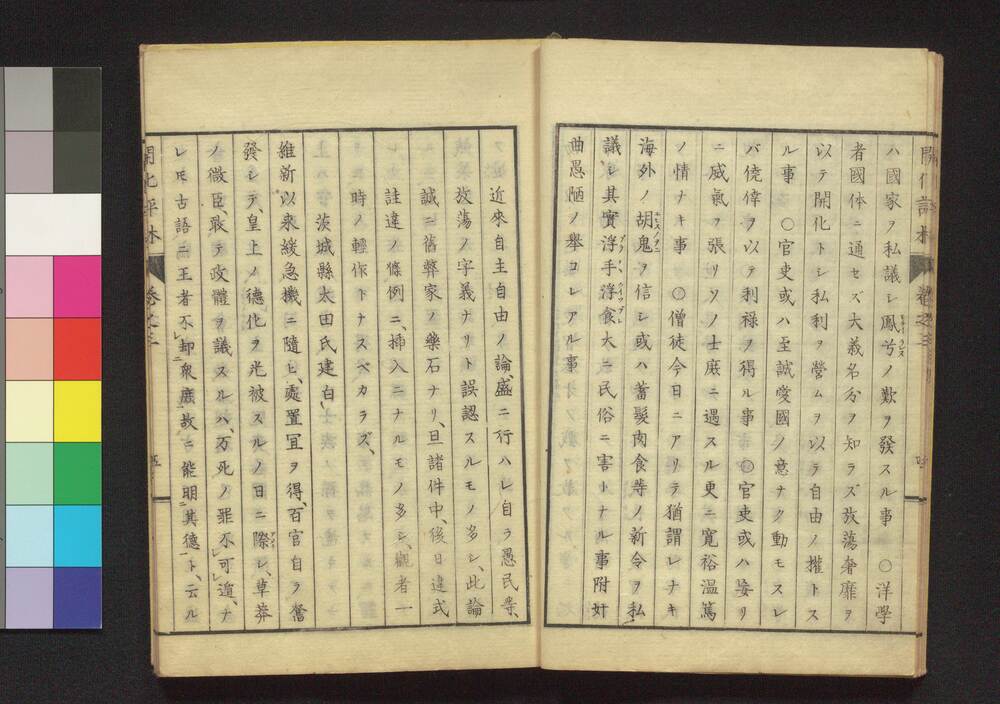 ハ國家ヲ私議シ鳳兮ノ歎ヲ發スル事　○洋學
者國体ニ通セズ大義名分ヲ知ラズ放蕩奢靡ヲ
以テ開化トシ私利ヲ營ムヲ以テ自由ノ權トス
ル事　○官吏或ハ至誠愛國ノ意ナク動モスレ
バ僥倖ヲ以テ利祿ヲ得ル事　○官吏或ハ妄リ
ニ威氣ヲ張リソノ士庶ニ遇スル更ニ寛裕温篤
ノ情ナキ事　○僧徒今日ニアリテ猶謂レナキ
海外ノ胡鬼ヲ信シ或ハ蓄髮肉食等ノ新令ヲ私
議シ其實浮手浮食大ニ民俗ニ害トナル事附奸
曲愚陋ノ舉コレアル事
近來自主自由ノ論、盛ニ行ハレ自ラ愚民輩、
放蕩ノ字義ナリト誤認スルモノ多シ、此論
誠ニ舊弊家ノ藥石ナリ、且諸件中、後日違式
詿違ノ條例ニ、挿入ニナルモノ多シ、觀者一
時ノ輕作トナスベカラズ、
茨城縣太田氏建白、
維新以來緩急機ニ隨ヒ、處置冝ヲ得、百官自ラ奮
發シテ、皇上ノ德化ヲ光被スルノ日ニ際シ、草莽
ノ微臣、敢テ政體ヲ議スルハ、万死ノ罪不可遁、ナ
レ𪜈古語ニ王者不却衆庶故ニ能明其德ト、云ル
開化評林
卷之三